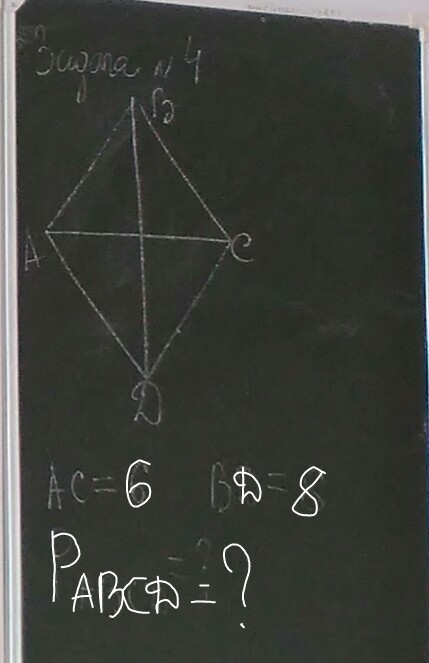 Задача №4
B
A
C
D
AC=6 BD=8
P ABCD = ?